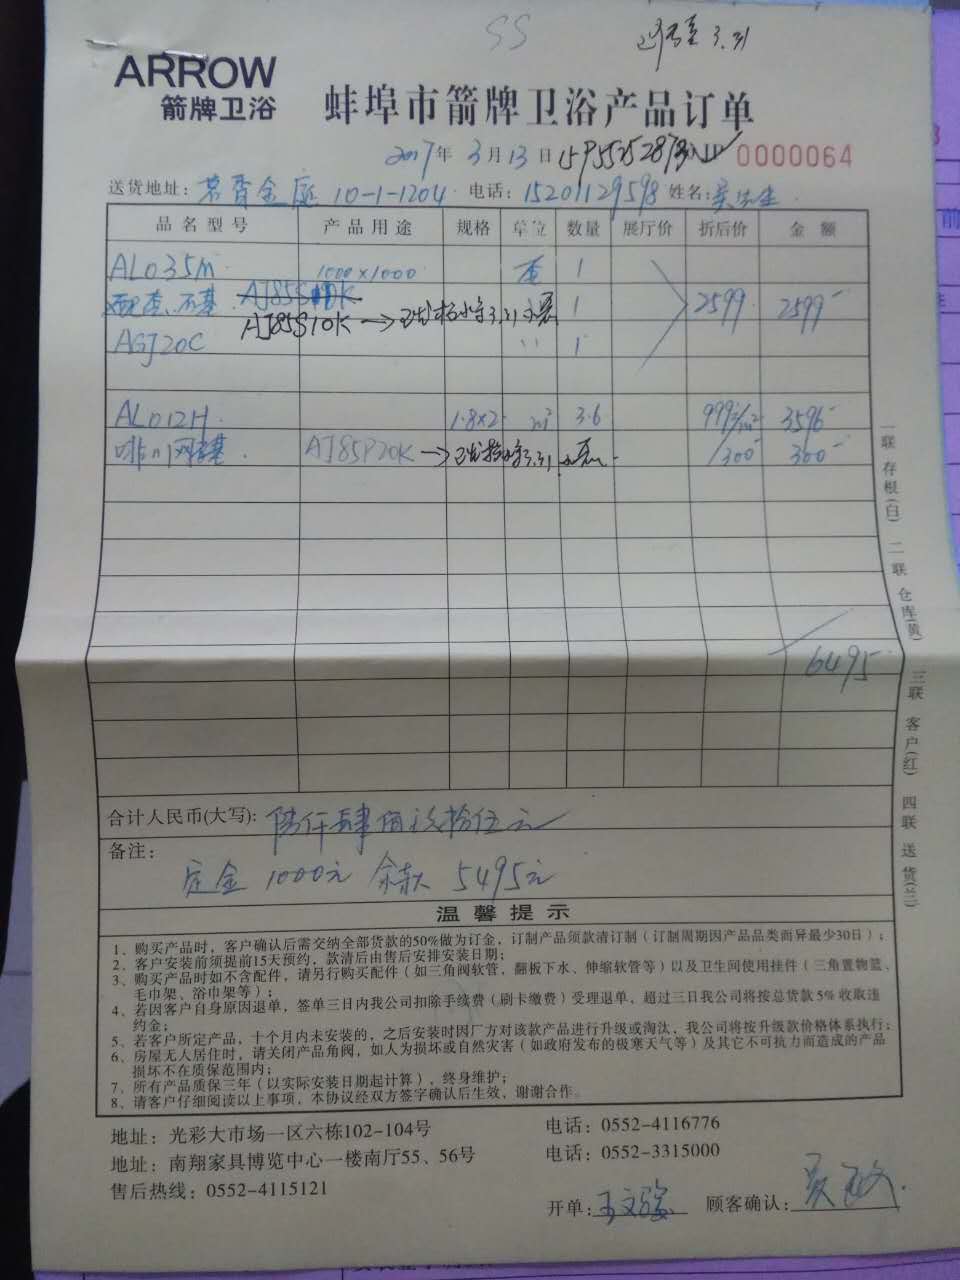 SS
3.31
ARROW
箭牌卫浴
蚌埠市箭牌卫浴产品订单
2017年3月13日 15955252873 NO 0000064
送货地址: 茗香金庭 10-1-1204 电话: 15201129598 姓名: 吴先生
品名型号 产品用途 规格 单位 数量 展厅价 折后价 金额
AL035M 1000×1000 套 1
配套、石基 AJ85S10K 1 2599 2599
AJ85S10K → 3.31
AGJ20C 〃 1
AL012H 1.8×2 m² 3.6 999/m² 3596
啡川网石基 AJ85P20K → 3.31 300 300
6495
合计人民币(大写): 陆仟肆佰玖拾伍元
备注:
定金1000元 余款5495元
温馨提示
1、购买产品时，客户确认后需交纳全部货款的50%做为订金，订制产品须款清订制（订制周期因产品品类而异最少30日）；
2、客户安装前须提前15天预约，款清后由售后安排安装日期；
3、购买产品时如不含配件，请另行购买配件（如三角阀软管、翻板下水、伸缩软管等）以及卫生间使用挂件（三角置物篮、
毛巾架、浴巾架等）；
4、若因客户自身原因退单，签单三日内我公司扣除手续费（刷卡缴费）受理退单，超过三日我公司将按总货款5%收取违
约金；
5、若客户所定产品，十个月内未安装的，之后安装时因厂方对该款产品进行升级或淘汰，我公司将按升级款价格体系执行；
6、房屋无人居住时，请关闭产品角阀，如人为损坏或自然灾害（如政府发布的极寒天气等）及其它不可抗力而造成的产品
损坏不在质保范围内；
7、所有产品质保三年（以实际安装日期起计算），终身维护；
8、请客户仔细阅读以上事项，本协议经双方签字确认后生效，谢谢合作。
地址：光彩大市场一区六栋102-104号 电话：0552-4116776
地址：南翔家具博览中心一楼南厅55、56号 电话：0552-3315000
售后热线：0552-4115121
开单: 王文骏 顾客确认:
一联 存根(白) 二联 仓库(黄) 三联 客户(红) 四联 送货(兰)